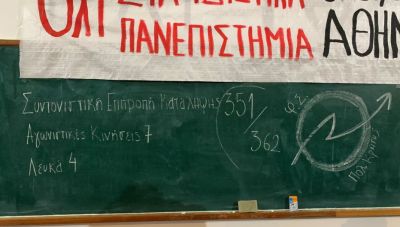 ΌΧΙ ΣΤΑ ΙΔΙΩΤΙΚΑ
ΠΑΝΕΠΙΣΤΗΜΙΑ ΑΘΗΝ
Συντονιστική Επιτροπή Κατάληψης 351/362
Αγωνιστικές Κινήσεις 7
Λευκά 4